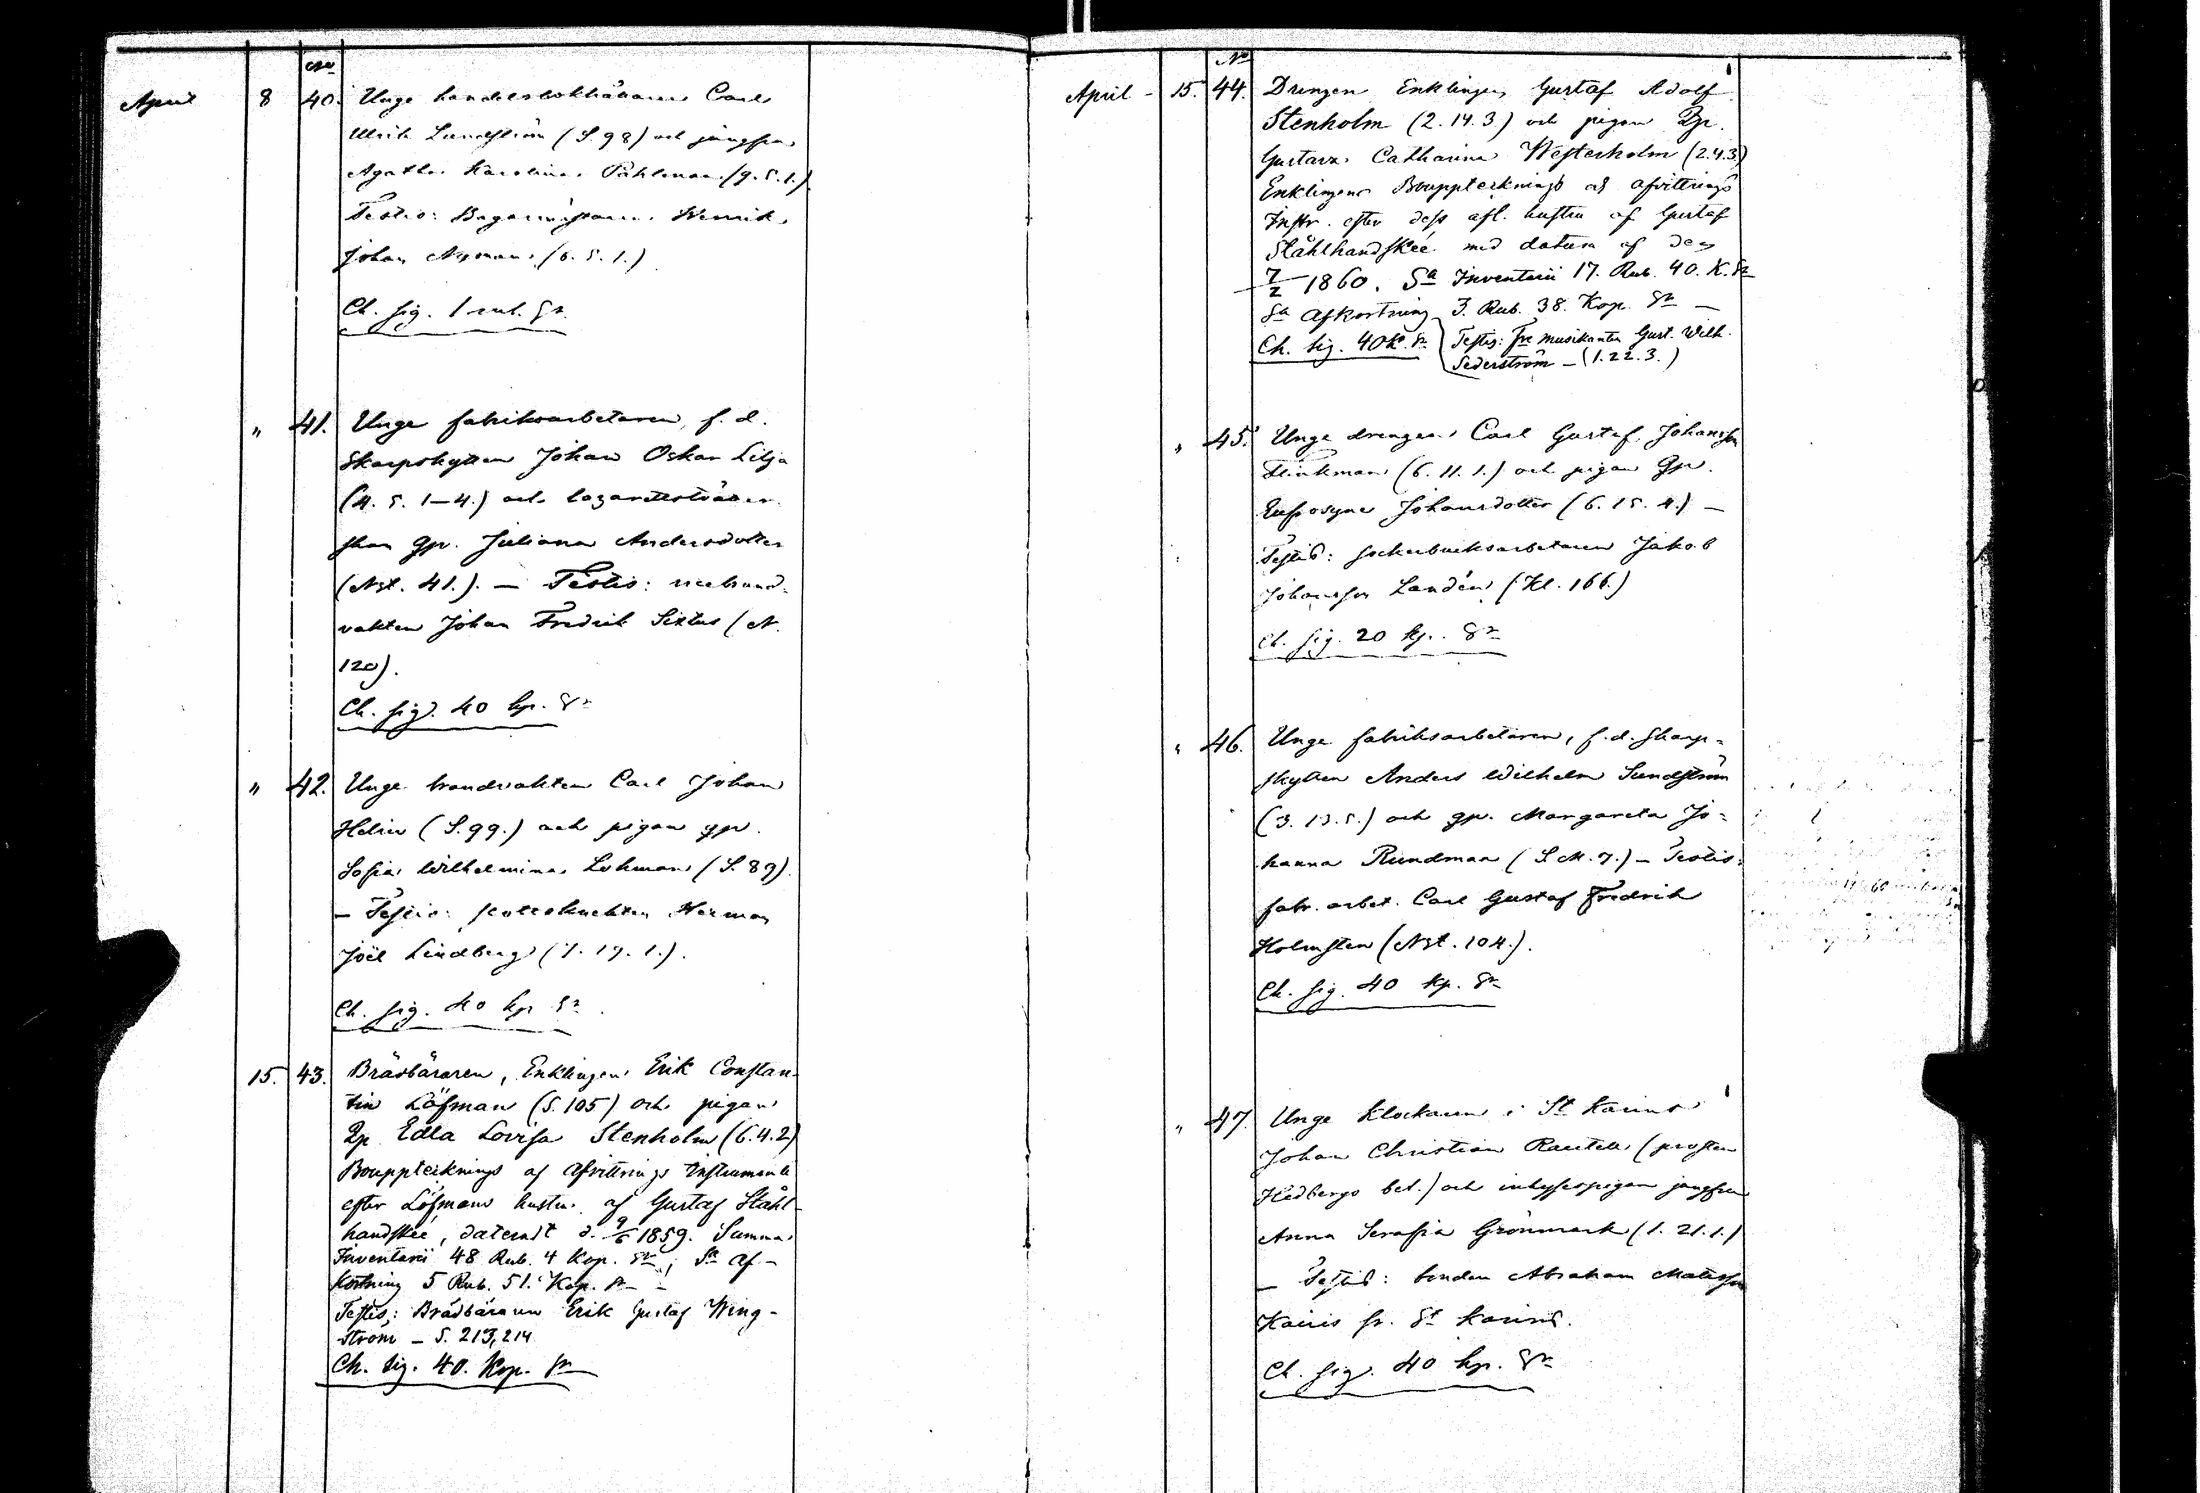 No
April 8 40. Unge handelsbokhållaren Carl
Ulrik Lundström (S. 98) och jungfrun
Agatha Karolina Påhlman (9. 5. 1.)
Testis: Bagaremästaren Henrik
Johan Nyman (6. 5. 1.)
Ch. sig. 1 rub. Sr
" 41. Unge fabriksarbetaren, f. d.
Skarpskytten Johan Oskar Lilja
(4. 5. 1-4.) och lazarettsträder-
skan Gp. Juliana Andersdotter
(Nst. 41.). — Testis: nee brand-
vakten Johan Fredrik Sixtus (N.
120).
Ch. sig. 40 kp. Sr
" 42. Unge brandvakten Carl Johan
Helin (S. 99.) och pigan gp.
Sofia Wilhelmina Lohman (S. 89).
— Testis: Herman
Joël Lindberg (7. 19. 1.).
Ch. sig. 40 kp Sr.
15. 43. Brädbäraren, Enklingen Erik Constan-
tin Löfman (S. 105) och pigan
Qp. Edla Lovisa Stenholm (6. 4. 2)
Bouppteknings af Afvittrings Instrument
efter Löfmans hustru af Gustaf Stål-
handskéé, dateradt d. 9/6 1859. Summa
Inventarii 48 Rub. 4 Kop. Sr; Sa Af-
kortning 5 Rub. 51. Kop. Sr —
Testis: Brädbäraren Erik Gustaf Wing-
ström — S. 213, 214
Ch. Sig. 40. Kop. Sr
No
April - 15. 44. Drengen Enklingen Gustaf Adolf
Stenholm (2. 14. 3) och pigan Qp.
Gustava Catharina Westerholm (2.4.3)
Enklingens Bouppteknings och afvittrings
Instr. efter dess afl. hustru af Gustaf
Stålhandskéé med datum af den
7/2 1860. Sa Inventarii 17. Rub. 40. K. Sr
Sa Afkortning 3. Rub. 38. Kop. Sr —
Ch. Sig. 40 K. Sr Testis: Fre musikanten Gust. Wilh.
Sederström — (1. 22. 3.)
" 45. Unge drengen Carl Gustaf Johansson
Flinkman (6. 11. 1.) och pigan Gp.
Eufrosyne Johansdotter (6. 15. 4.) —
Testis: sockerbruksarbetaren Jakob
Johansson Landén (Kl. 166.)
Ch. sig. 20 kp. Sr
" 46. Unge fabriksarbetaren, f. d. skarp-
skytten Anders Wilhelm Sundström
(3. 13. 5.) och gp. Margareta Jo-
hanna Rundman (S. M. 7.) — Testis:
fabr. arbet. Carl Gustaf Fredrik
Holmsten (Nst. 104.).
Ch. sig. 40 kp. Sr
" 47. Unge Klockaren i St Karins
Johan Christian Rautell (prosten
Hedbergs bet.) och inhysespigan jungfrun
Anna Serafia Grönmark (1. 21. 1.)
— Testis: bonden Abraham Matsson
Kairis fr. St Karins.
Ch. sig. 40 kp. Sr